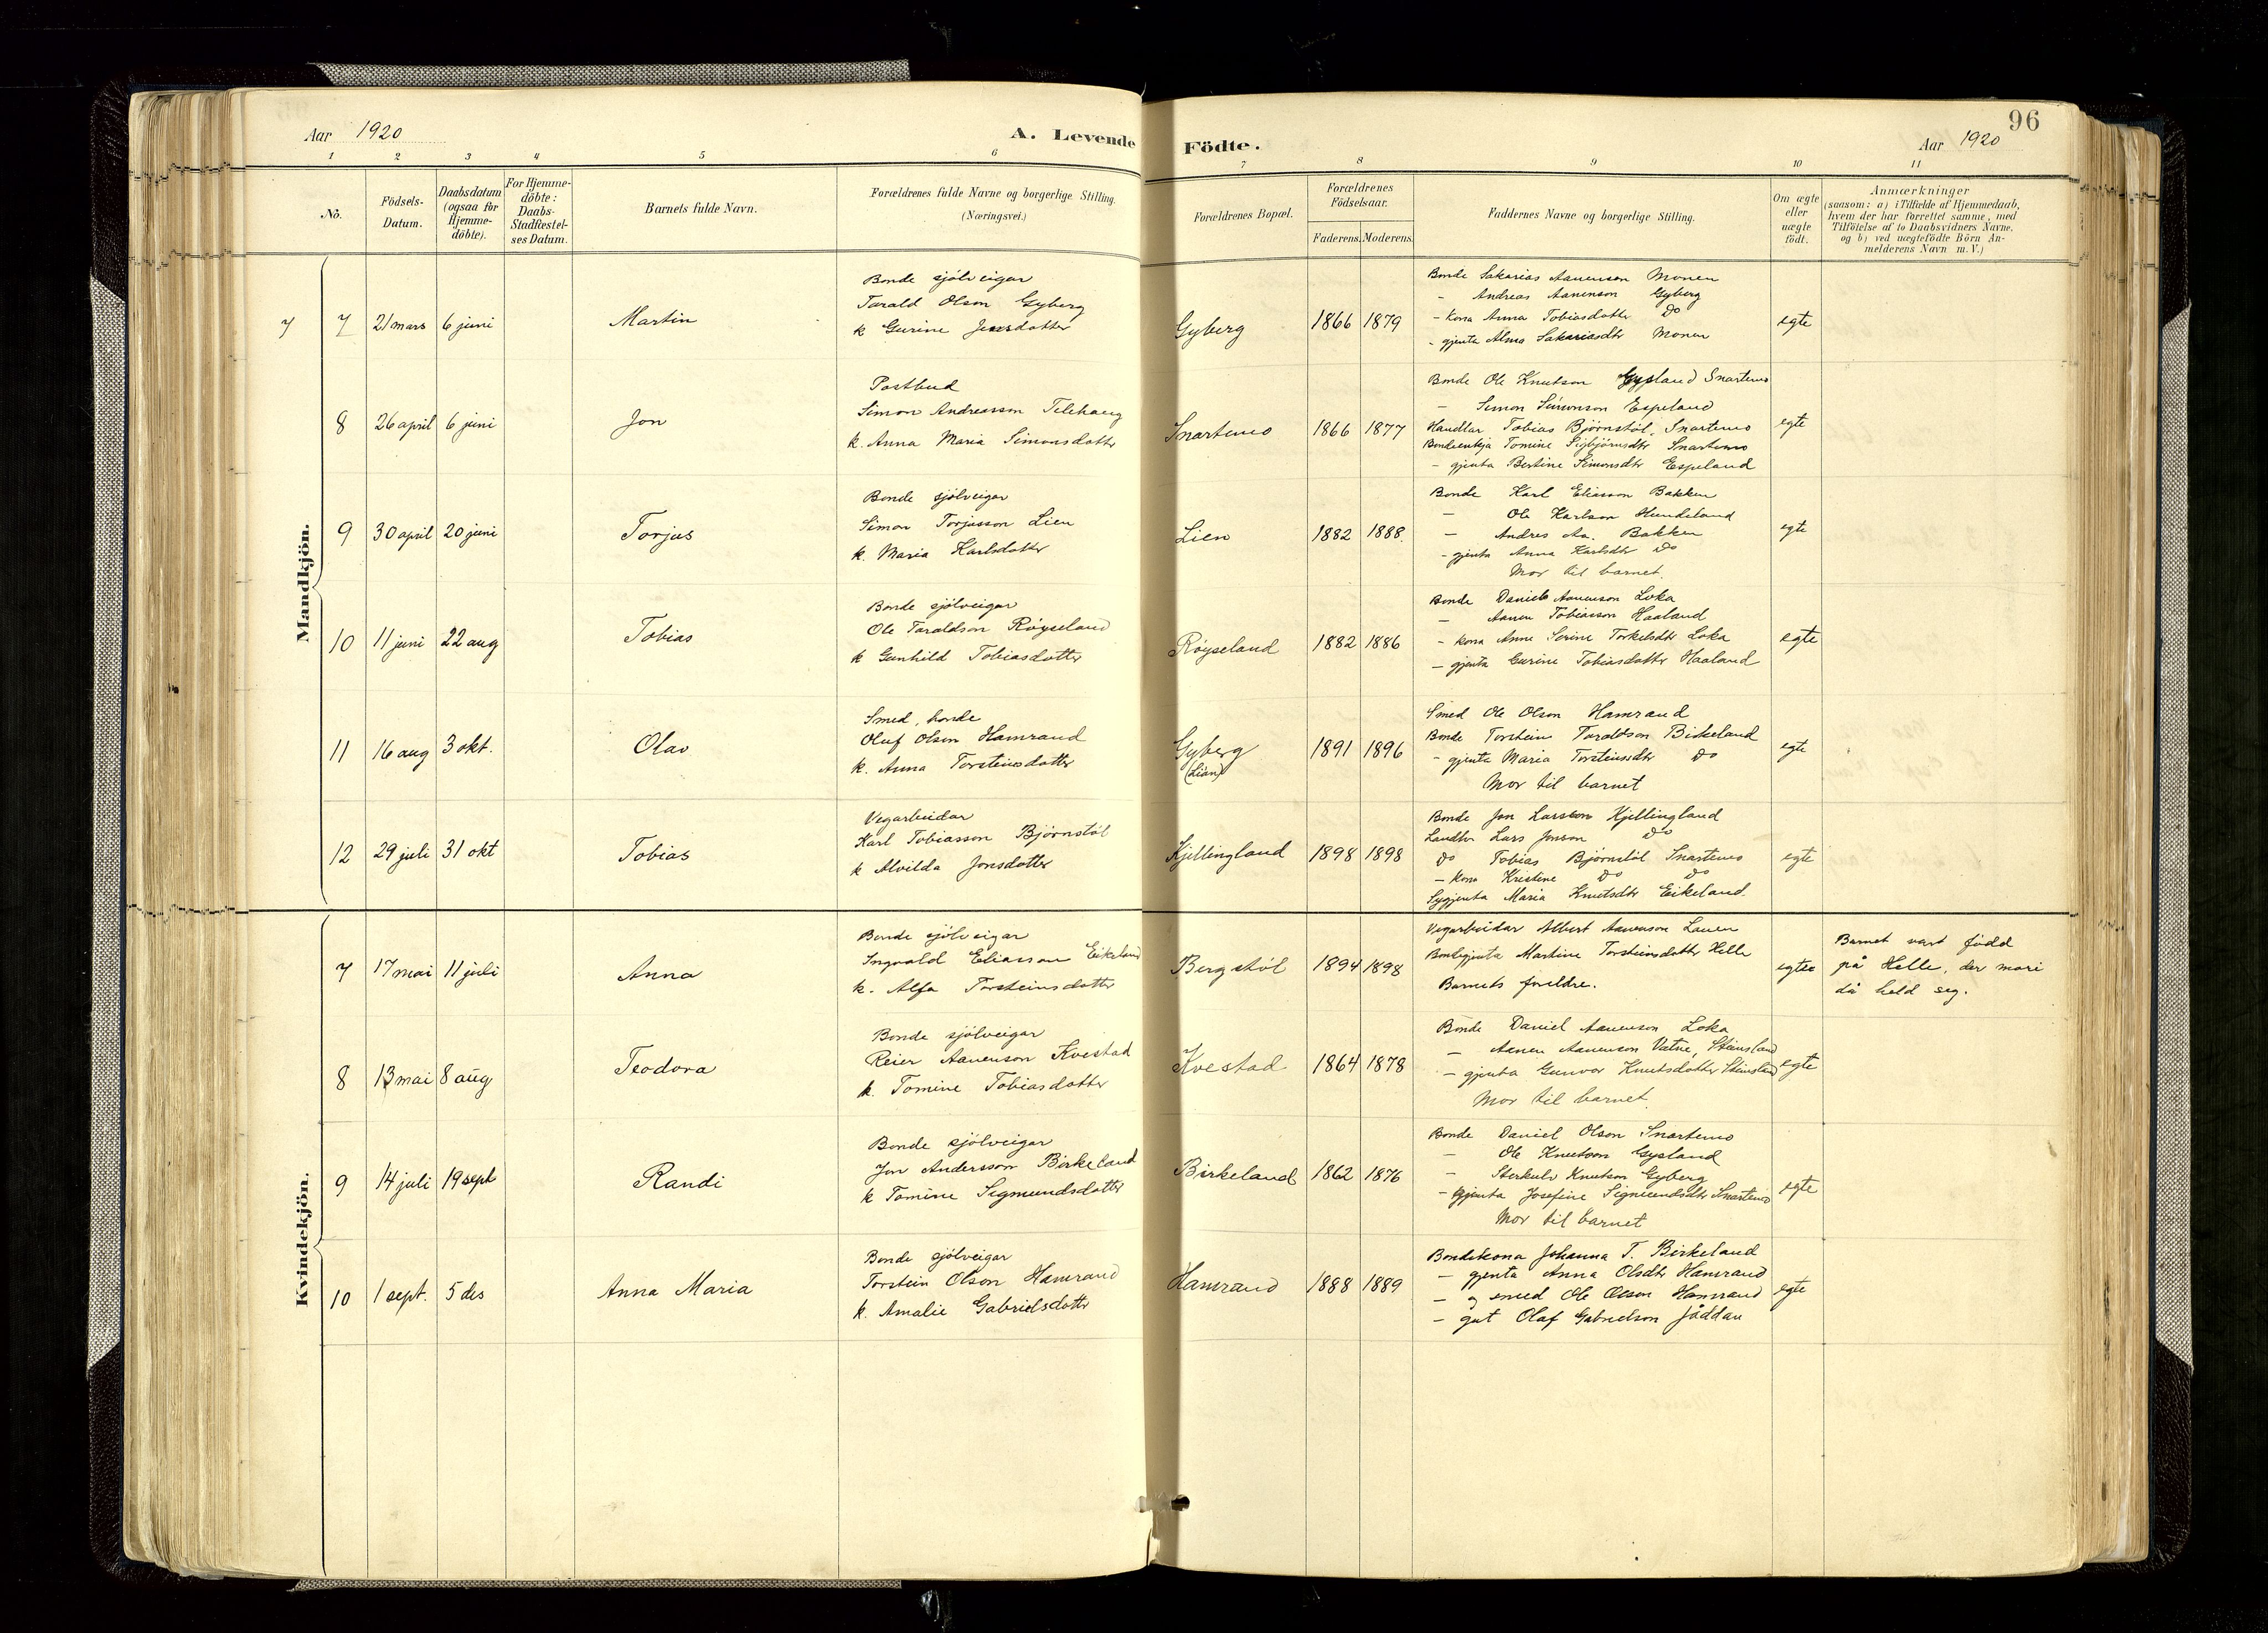 Aar 1920
A. Levende Födte.
96
Aar 1920
1 2 3 4 5 6 7 8 9 10 11
No.
Födsels-
Datum.
Daabsdatum
(ogsaa for
Hjemme-
döbte).
For Hjemme-
döbte:
Daabs-
Stadfæstel-
ses Datum.
Barnets fulde Navn.
Forældrenes fulde Navne og borgerlige Stilling.
(Næringsvei.)
Forældrenes Bopæl.
Forældrenes
Födselsaar.
Faderens. Moderens.
Faddernes Navne og borgerlige Stilling.
Om ægte
eller
uægte
födt.
Anmærkninger
(saasom: a) i Tilfælde af Hjemmedaab,
hvem der har forrettet samme, med
Tilföielse af to Daabsvidners Navne,
og b) ved uægtefödte Börn An-
melderens Navn m.V.)
Mandkjön.
7 7 21 mars 6 juni Martin
Bonde sjölveigar
Tarald Olson Gyberg
k Gurine Jensdotter
Gyberg 1866 1879
Bonde Sakarias Aanenson Monen
- Andreas Aanenson Gyberg
- kona Anna Tobiasdotter Do
- gjenta Alma Sakariasdtr Monen
egte
8 26 april 6 juni Jon
Postbud
Simon Andreasson Telehaug
k. Anna Maria Simonsdotter
Snartemo 1866 1877
Bonde Ole Knutson Gysland Snartemo
- Simon Simonson Espeland
Handlar Tobias Bjørnstøl, Snartemo
Bondeenkja Tomine Sigbjørnsdtr Snartemo
- gjenta Bertine Simonsdtr Espeland
egte
9 30 april 20 juni Torjus
Bonde sjölveigar
Simon Torjusson Lien
k. Maria Karlsdotter
Lien 1882 1888.
Bonde Karl Eliasson Bakken
- Ole Karlson Hundeland
- Andres Aa. Bakken
- gjenta Anna Karlsdtr Do
Mor til barnet.
egte
10 11 juni 22 aug Tobias
Bonde sjölveigar
Ole Taraldson Röyseland
k Gunhild Tobiasdotter
Röyseland 1882 1886
Bonde Daniel Aanenson Loka
- Aanen Tobiasson Haaland
- kona Anne Serine Torkelsdtr Loka
- gjenta Gurine Tobiasdotter Haaland
egte
11 16 aug 3 okt. Olav
Smed, bonde
Oluf Olsen Hamrand
k. Anna Torsteinsdotter
Gyberg
(Lian)
1891 1896
Smed Ole Olson Hamrand
Bonde Torstein Taraldson Birkeland
- gjenta Maria Torsteinsdtr Do
Mor til barnet
egte
12 29 juli 31 okt Tobias
Vegarbeidar
Karl Tobiasson Bjørnstøl
k Alvilda Jonsdotter
Kjellingland 1898 1898
Bonde Jon Larsson Kjellingland
Landhr Lars Jonson Do
Do Tobias Bjørnstøl Snartemo
- kona Kristine Do Do
Sygjenta Maria Knutsdtr Eikeland.
egte
Kvindekjön.
7 17 mai 11 juli Anna
Bonde sjölveigar
Ingvald Eliasson Eikeland
k. Alfa Torsteinsdotter
Bergstøl 1894 1898
Vegarbeidar Albert Aanenson Lauen
Bondegjenta Martine Torsteinsdotter Helle
Barnets foreldre.
egte
Barnet vart född
på Helle, der mori
då held seg.
8 13 mai 8 aug Teodora
Bonde sjölveigar
Reier Aanenson Kvestad
k. Tomine Tobiasdotter
Kvestad 1864 1878
Bonde Daniel Aanenson Loka
- Aanen Aanenson Vatne, Steinsland
- gjenta Gunvor Knutsdotter Steinsland
Mor til barnet.
egte
9 14 juli 19 sept Randi
Bonde sjölveigar
Jon Andersson Birkeland
k Tomine Sigmundsdotter
Birkeland 1862 1876
Bonde Daniel Olson Snartemo
- Ole Knutson Gysland
- Sterkulv Knutson Gyberg
- gjenta Josefine Sigmundsdtr Snartemo
Mor til barnet
egte
10 1 sept. 5 des Anna Maria
Bonde sjölveigar
Torstein Olson Hamrand
k. Amalie Gabrielsdotter
Hamrand 1888 1889
Bondekona Johanna T. Birkeland
- gjenta Anna Olsdtr Hamrand
- og smed Ole Olson Hamrand
- gut Olaf Gabrielson Jåddan
egte